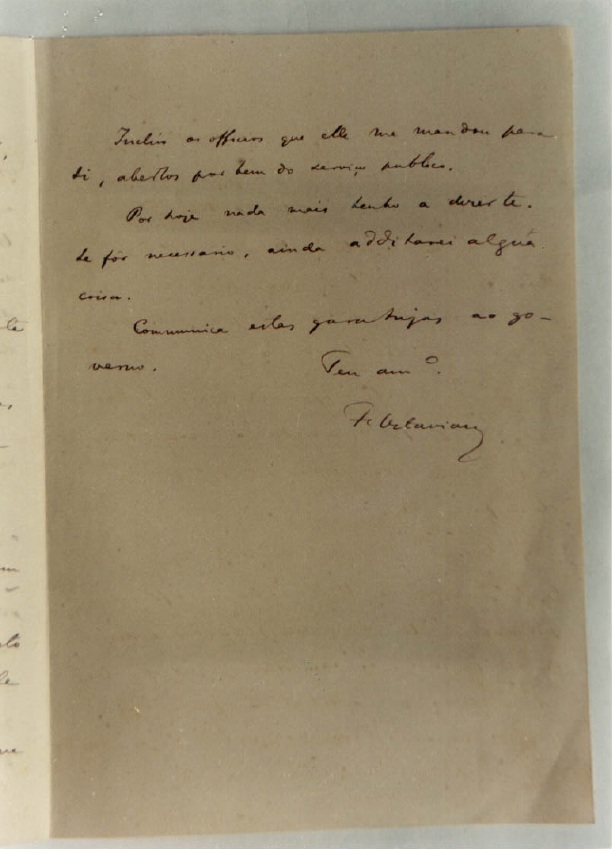 Incluo os officios que elle me mandou para
ti, abertos por bem do serviço publico.
Por hoje nada mais tenho a dizer te.
Se fôr necessario, ainda additarei algũa
coisa.
Communica estas garatujas ao go-
verno. Teu amº.
F. Octaviano